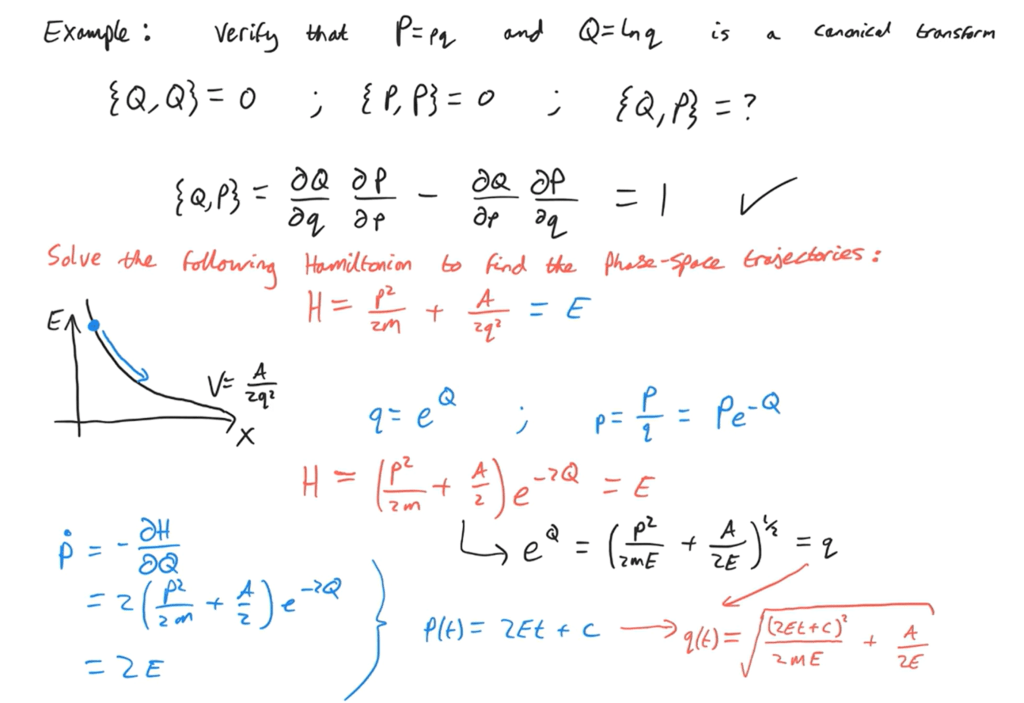 Example: Verify that P=pq and Q=lnq is a canonical transform
{Q,Q}=0 ; {P,P}=0 ; {Q,P}=?
{Q,P} = ∂Q/∂q ∂P/∂p - ∂Q/∂p ∂P/∂q = 1 ✓
Solve the following Hamiltonian to find the phase-space trajectories:
H = p²/2m + A/2q² = E
E
V= A/2q²
X
q= e^Q ; p= P/q = Pe^-Q
H = (P²/2m + A/2) e^-2Q = E
↳ e^Q = (P²/2mE + A/2E)^1/2 = q
Ṗ = - ∂H/∂Q
= 2(P²/2m + A/2) e^-2Q
= 2E
} P(t) = 2Et + c → q(t) = √((2Et+c)²/2mE + A/2E)